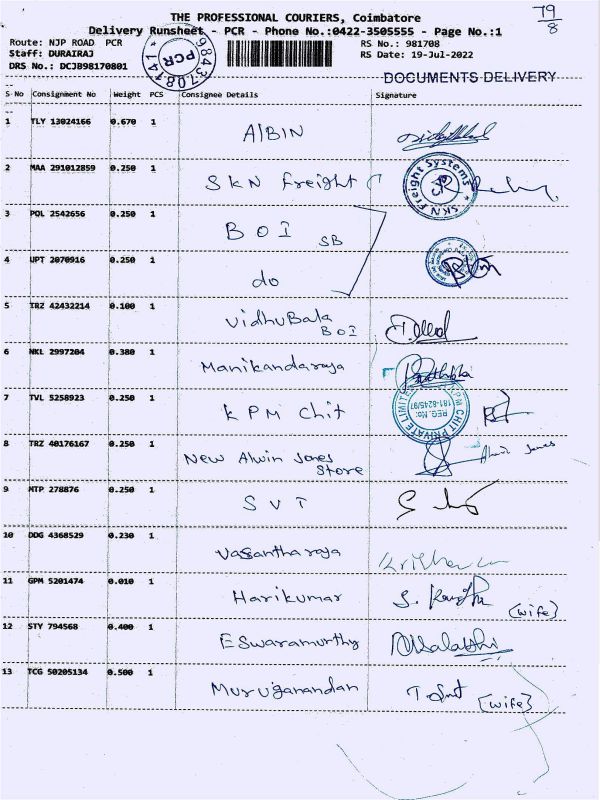 THE PROFESSIONAL COURIERS, Coimbatore
79/8
Delivery Runsheet - PCR - Phone No.:0422-3505555 - Page No.:1
Route: NJP ROAD PCR
RS No.: 981708
Staff: DURAIRAJ
RS Date: 19-Jul-2022
DRS No.: DCJB98170801
PCR
9843708141
DOCUMENTS DELIVERY
S No Consignment No Weight PCS Consignee Details Signature
1 TLY 13024166 0.670 1 AlBIN
2 MAA 291012859 0.250 1 SKN Freight
SKN Freight Systems
3 POL 2542656 0.250 1 BOI SB
4 UPT 2070916 0.250 1 do
5 TRZ 42432214 0.100 1 VidhuBala
BOI
6 NKL 2997204 0.380 1 Manikandaraja
7 TVL 5258923 0.250 1 KPM Chit
KPM CHIT PRIVATE LIMITED
REG. No:
181-8245/97
8 TRZ 40176167 0.250 1 New Alwin Jones
Store
Alwin Jones
9 MTP 278876 0.250 1 SVT
10 DDG 4368529 0.230 1 Vasantharaja
11 GPM 5201474 0.010 1 Harikumar
(wife)
12 STY 794568 0.400 1 ESwaramurthy
13 TCG 50205134 0.500 1 Muruganandan
(wife)